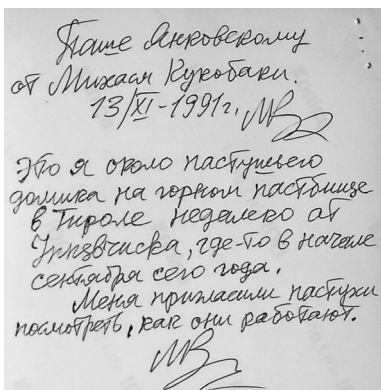 Паше Янковскому
от Михася Кукобаки.
13/XI-1991г.
Это я около пастушьего
домика на горном пастбище
в Тироле недалеко от
где-то в начале
сентября сего года.
Меня пригласили пастухи
посмотреть, как они работают.